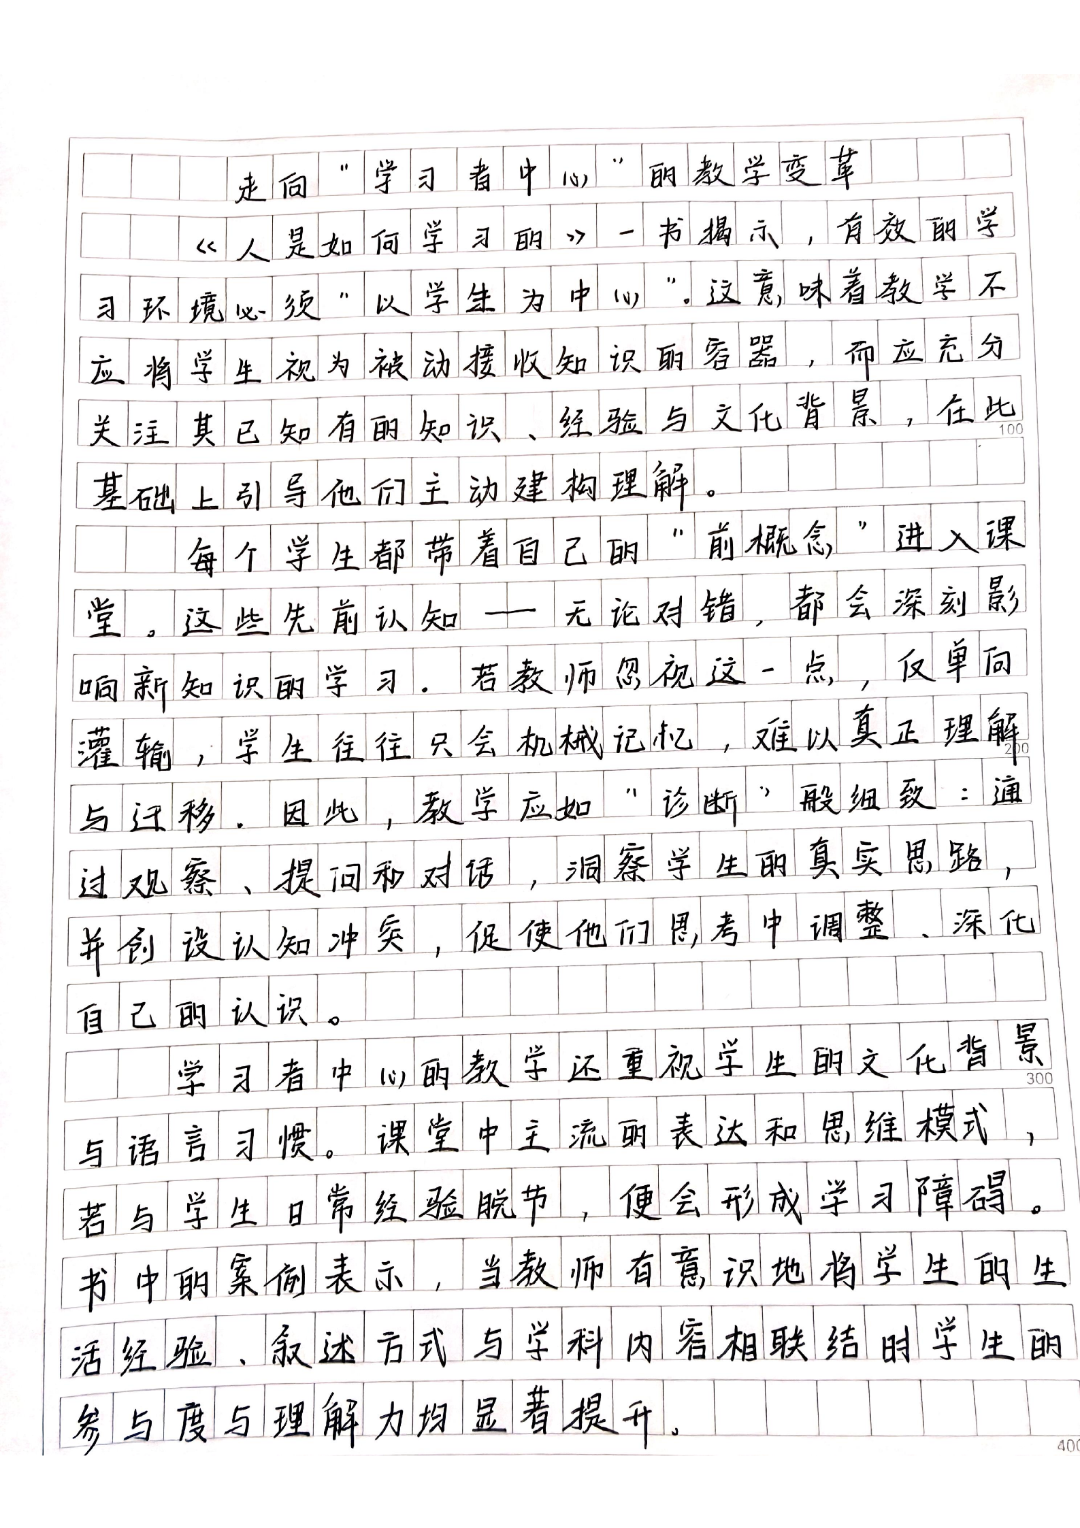 走向“学习者中心”的教学变革
《人是如何学习的》一书揭示，有效的学
习环境必须“以学生为中心”.这意味着教学不
应将学生视为被动接收知识的容器，而应充分
关注其已知有的知识、经验与文化背景，在此
100
基础上引导他们主动建构理解。
每个学生都带着自己的“前概念”进入课
堂。这些先前认知——无论对错，都会深刻影
响新知识的学习.若教师忽视这一点，仅单向
灌输，学生往往只会机械记忆，难以真正理解
200
与迁移.因此，教学应如“诊断”般细致：通
过观察、提问和对话，洞察学生的真实思路，
并创设认知冲突，促使他们思考中调整、深化
自己的认识。
学习者中心的教学还重视学生的文化背景
300
与语言习惯。课堂中主流的表达和思维模式，
若与学生日常经验脱节，便会形成学习障碍。
书中的案例表示，当教师有意识地将学生的生
活经验、叙述方式与学科内容相联结时学生的
参与度与理解力均显著提升。
400